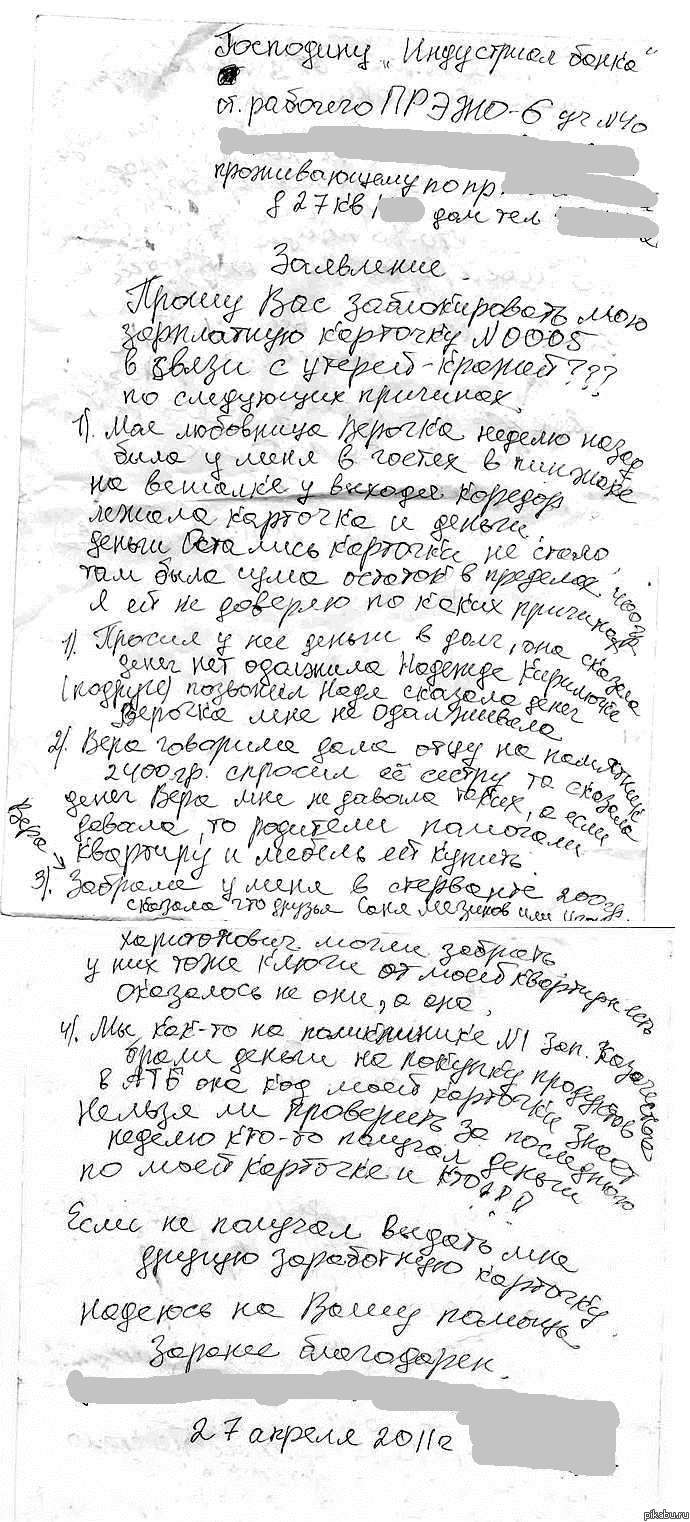 Господину „Индустриал банка"
от рабочего ПРЭЖО-6 уч N40
проживающему по пр.
д 27 кв 1 дом тел
Заявление
Прошу Вас заблокировать мою
зарплатную карточку N0005
в связи с утерей-кражей???
по следующих причинах.
1). Мае любовница Верочка неделю назад
была у меня в гостех в пинжаке
на вешалке у выхода коредор
лежала карточка и деньги
деньги Остались карточки не стало,
там была сума остаток в пределах 1400гр
Я ей не доверяю по каких причинах
1). Просил у нее деньги в долг, она сказала
денег нет одалжила Надежде Кирилючке
(подруге) позвонил Надя сказала денег
Верочка мне не одалживала
2). Вера говорила дала отцу на памятник
2400гр. спросил её сестру та сказала
денег Вера мне не давала таких, а если
давала, то родители памагали
квартиру и мебель ей купить.
Вера →
3). Забрала у меня в стерванте 200гр.
сказала что друзья Саня Мазиков или
харитонович могли забрать
у них тоже ключи от моей квартири есть
Оказалось не они, а она.
4). Мы как-то на поликлинике N1 Зап. Казачества
брали деньги на покупку продуктов
в АТБ она код моей карточки знает
Нельзя ли проверить за последнюю
неделю кто-то палучал деньги
по моей карточке и кто???
Если не палучал выдать мне
другую заработную карточку.
Надеюсь на Вашу помощь.
Заранее благодарен.
27 апреля 2011г
pikabu.ru